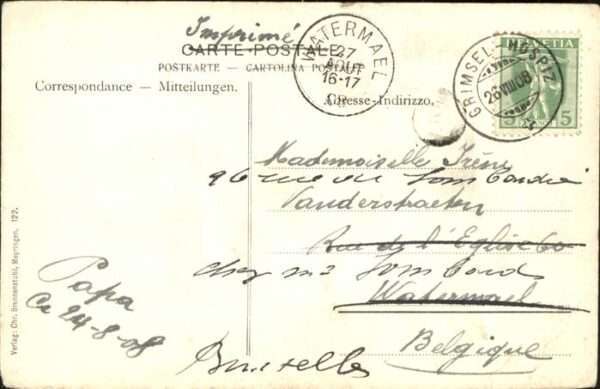 Imprimé
CARTE POSTALE
POSTKARTE — CARTOLINA POSTALE
Correspondance — Mitteilungen.
Adresse-Indirizzo.
WATERMAEL
27
AOUT
16-17
HELVETIA
5 5
GRIMSEL-HOSPIZ
26.VIII.08
Mademoiselle Irène
96 rue du Lombardie
Vanderstraeten
Rue de l'Eglise 60
chez mr Lombard
Watermael
Belgique
Bruxelles
Papa
24-8-08
Verlag: Chr. Brennenstuhl, Meyringen. 122.